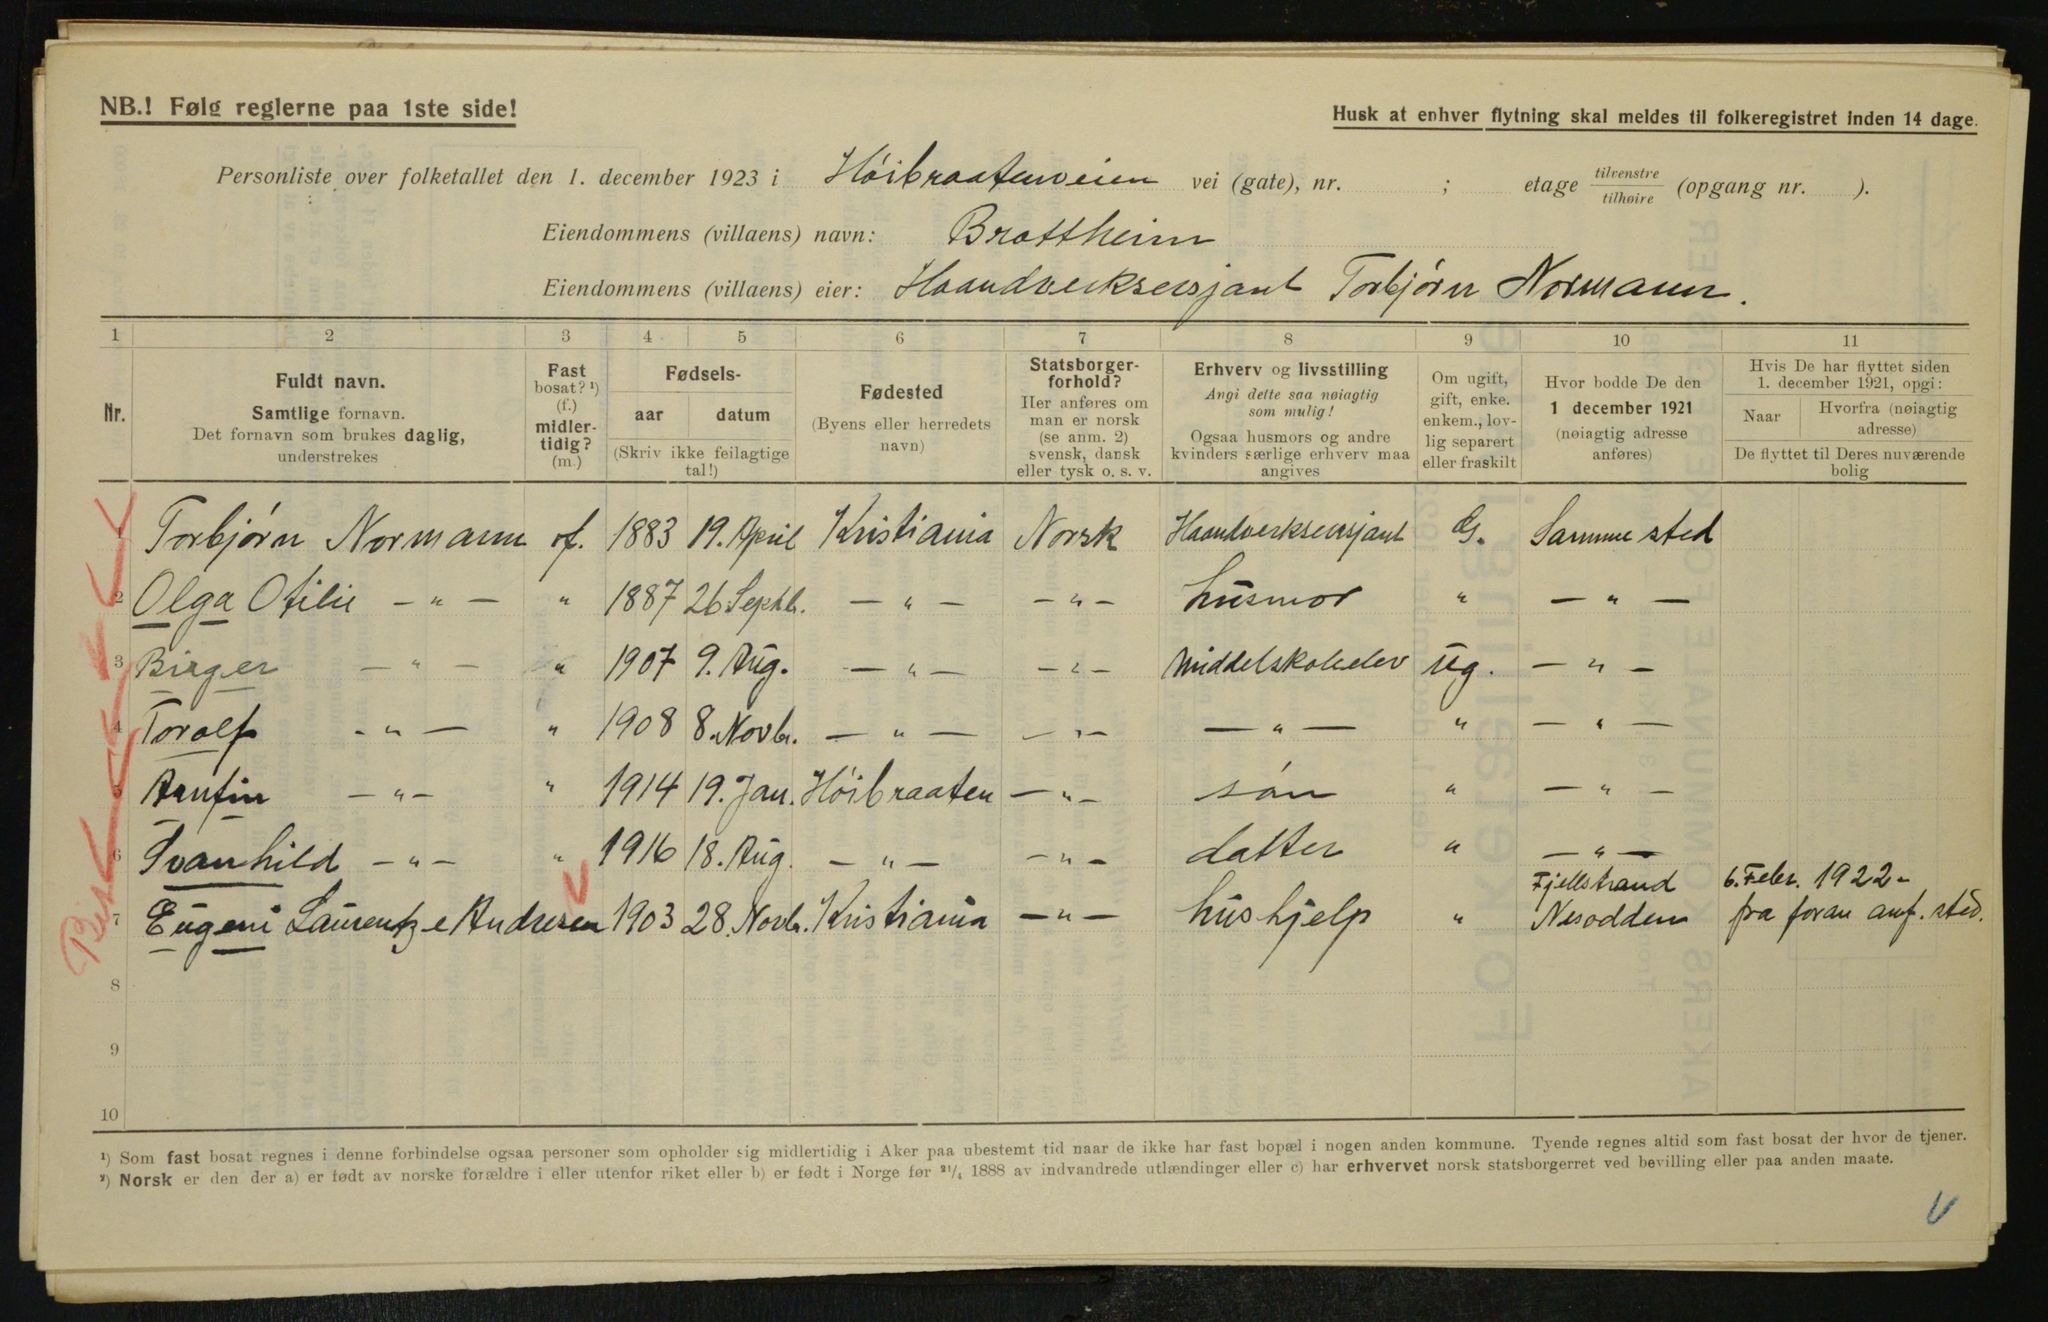 NB.! Følg reglerne paa 1ste side!
Husk at enhver flytning skal meldes til folkeregistret inden 14 dage.
Personliste over folketallet den 1. december 1923 i Høibraatenveien vei (gate), nr. ; etage tilvenstre/tilhøire (opgang nr. ).
Eiendommens (villaens) navn: Brattheim
Eiendommens (villaens) eier: Haandverksersjant Torbjørn Normann.
1 2 3 4 5 6 7 8 9 10 11
Nr.
Fuldt navn.
Samtlige fornavn.
Det fornavn som brukes daglig,
understrekes
Fast
bosat? ¹)
(f.)
midler-
tidig?
(m.)
Fødsels-
aar datum
(Skriv ikke feilagtige
tal!)
Fødested
(Byens eller herredets
navn)
Statsborger-
forhold?
Her anføres om
man er norsk
(se anm. 2)
svensk, dansk
eller tysk o. s. v.
Erhverv og livsstilling
Angi dette saa nøiagtig
som mulig!
Ogsaa husmors og andre
kvinders særlige erhverv maa
angives
Om ugift,
gift, enke.
enkem., lov-
lig separert
eller fraskilt
Hvor bodde De den
1 december 1921
(nøiagtig adresse
anføres)
Hvis De har flyttet siden
1. december 1921, opgi:
Naar Hvorfra (nøiagtig
adresse)
De flyttet til Deres nuværende
bolig
1 Torbjørn Normann f. 1883 19. April Kristiania Norsk Haandverksersjant G. Samme sted
2 Olga Otilie — „ — „ 1887 26 Septbr. — „ — — „ — husmor „ — „ —
3 Birger — „ — „ 1907 9. Aug. — „ — — „ — Middelskoleelev Ug. — „ —
4 Torolf — „ — „ 1908 8. Novbr. — „ — — „ — — „ — „ — „ —
5 Arnfin — „ — „ 1914 19. Jan. Høibraaten — „ — søn „ — „ —
6 Svanhild — „ — „ 1916 18. Aug. — „ — — „ — datter „ — „ —
Fjellstrand 6. Febr. 1922 -
7 Eugeni Laurentze Andresen 1903 28. Novbr. Kristiania — „ — hushjelp „ Nesodden fra foran anf. sted.
8
9
10
¹) Som fast bosat regnes i denne forbindelse ogsaa personer som opholder sig midlertidig i Aker paa ubestemt tid naar de ikke har fast bopæl i nogen anden kommune. Tyende regnes altid som fast bosat der hvor de tjener.
²) Norsk er den der a) er født av norske forældre i eller utenfor riket eller b) er født i Norge før ²¹/₄ 1888 av indvandrede utlændinger eller c) har erhvervet norsk statsborgerret ved bevilling eller paa anden maate.